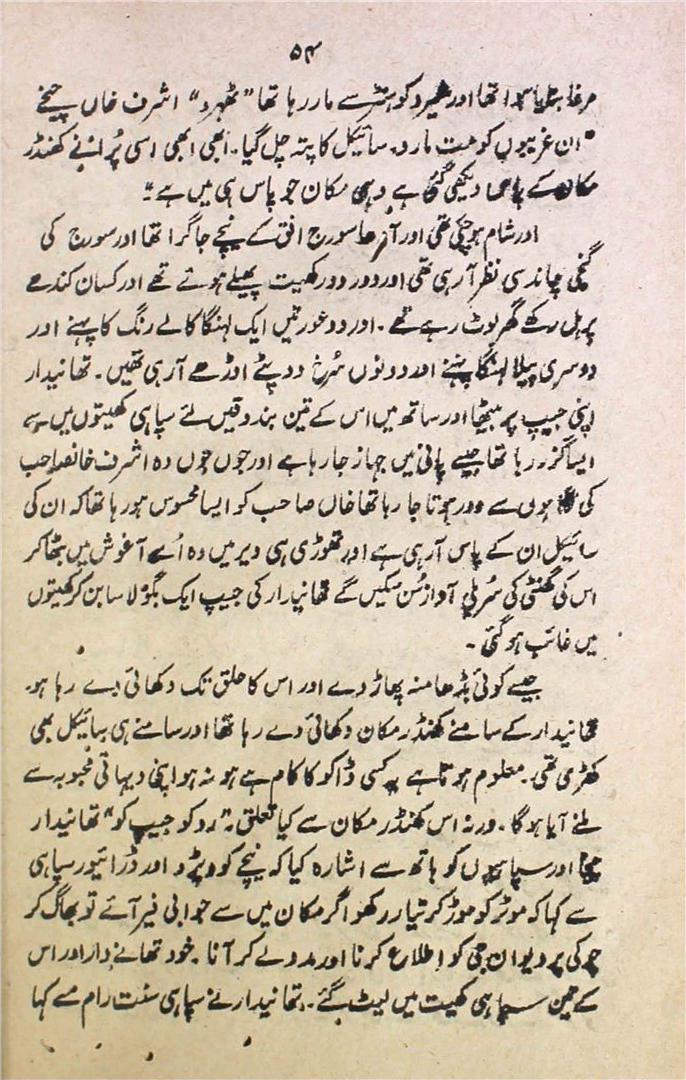 ۵۴
مرغا بنایا ہوا تھا اور خیرد کو ہنٹر سے مار رہا تھا "ٹھہرو" اشرف خاں چیخے
"ان غریبوں کو مت مارو۔ سائیکل کا پتہ چل گیا۔ ابھی ابھی اسی پُرانے کھنڈر
مکان کے پاس دیکھی گئی ہے وہی مکان جو پاس ہی میں ہے"۔
اور شام ہو چکی تھی اور آدھا سورج افق کے نیچے جا گرا تھا اور سورج کی
گنجی چاند سی نظر آ رہی تھی اور دور دور کھیت پھیلے ہوئے تھے اور کسان کندھے
پر ہل رکھے گھر لوٹ رہے تھے۔ اور دو عورتیں ایک لہنگا کالے رنگ کا پہنے اور
دوسری پیلا لہنگا پہنے اور دونوں سُرخ دوپٹے اوڑھے آ رہی تھیں۔ تھانیدار
اپنی جیپ پر بیٹھا اور ساتھ میں اس کے تین بندوقیں لئے سپاہی کھیتوں میں سے
ایسا گزر رہا تھا جیسے پانی میں جہاز جا رہا ہے اور جوں جوں وہ اشرف خانصاحب
کی ہوں سے دور ہوتا جا رہا تھا خاں صاحب کو ایسا محسوس ہو رہا تھا کہ ان کی
سائیکل ان کے پاس آ رہی ہے اور تھوڑی ہی دیر میں وہ اُسے آغوش میں بٹھا کر
اس کی گھنٹی کی سُریلی آواز سُن سکیں گے تھانیدار کی جیپ ایک بگولا سا بن کر کھیتوں
میں غائب ہو گئی۔
جیسے کوئی بڈھا منہ پھاڑ دے اور اس کا حلق تک دکھائی دے رہا ہو۔
تھانیدار کے سامنے کھنڈر مکان دکھائی دے رہا تھا اور سامنے ہی سائیکل بھی
کھڑی تھی۔ معلوم ہوتا ہے یہ کسی ڈاکو کا کام ہے ہو نہ ہو اپنی دیہاتی محبوبہ سے
ملنے آیا ہو گا۔ ورنہ اس کھنڈر مکان سے کیا تعلق۔ "روکو جیپ کو" تھانیدار
چیخا اور سپاہیوں کو ہاتھ سے اشارہ کیا کہ نیچے کود پڑو اور ڈرائیور سپاہی
سے کہا کہ موٹر کو موڑ کر تیار رکھو اگر مکان میں سے جوابی فیر آئے تو بھاگ کر
چوکی پر دیوان جی کو اطلاع کرنا اور مدد لے کر آنا۔ خود تھانے دار اور اس
کے تین سپاہی کھیت میں لیٹ گئے۔ تھانیدار نے سپاہی سنت رام سے کہا